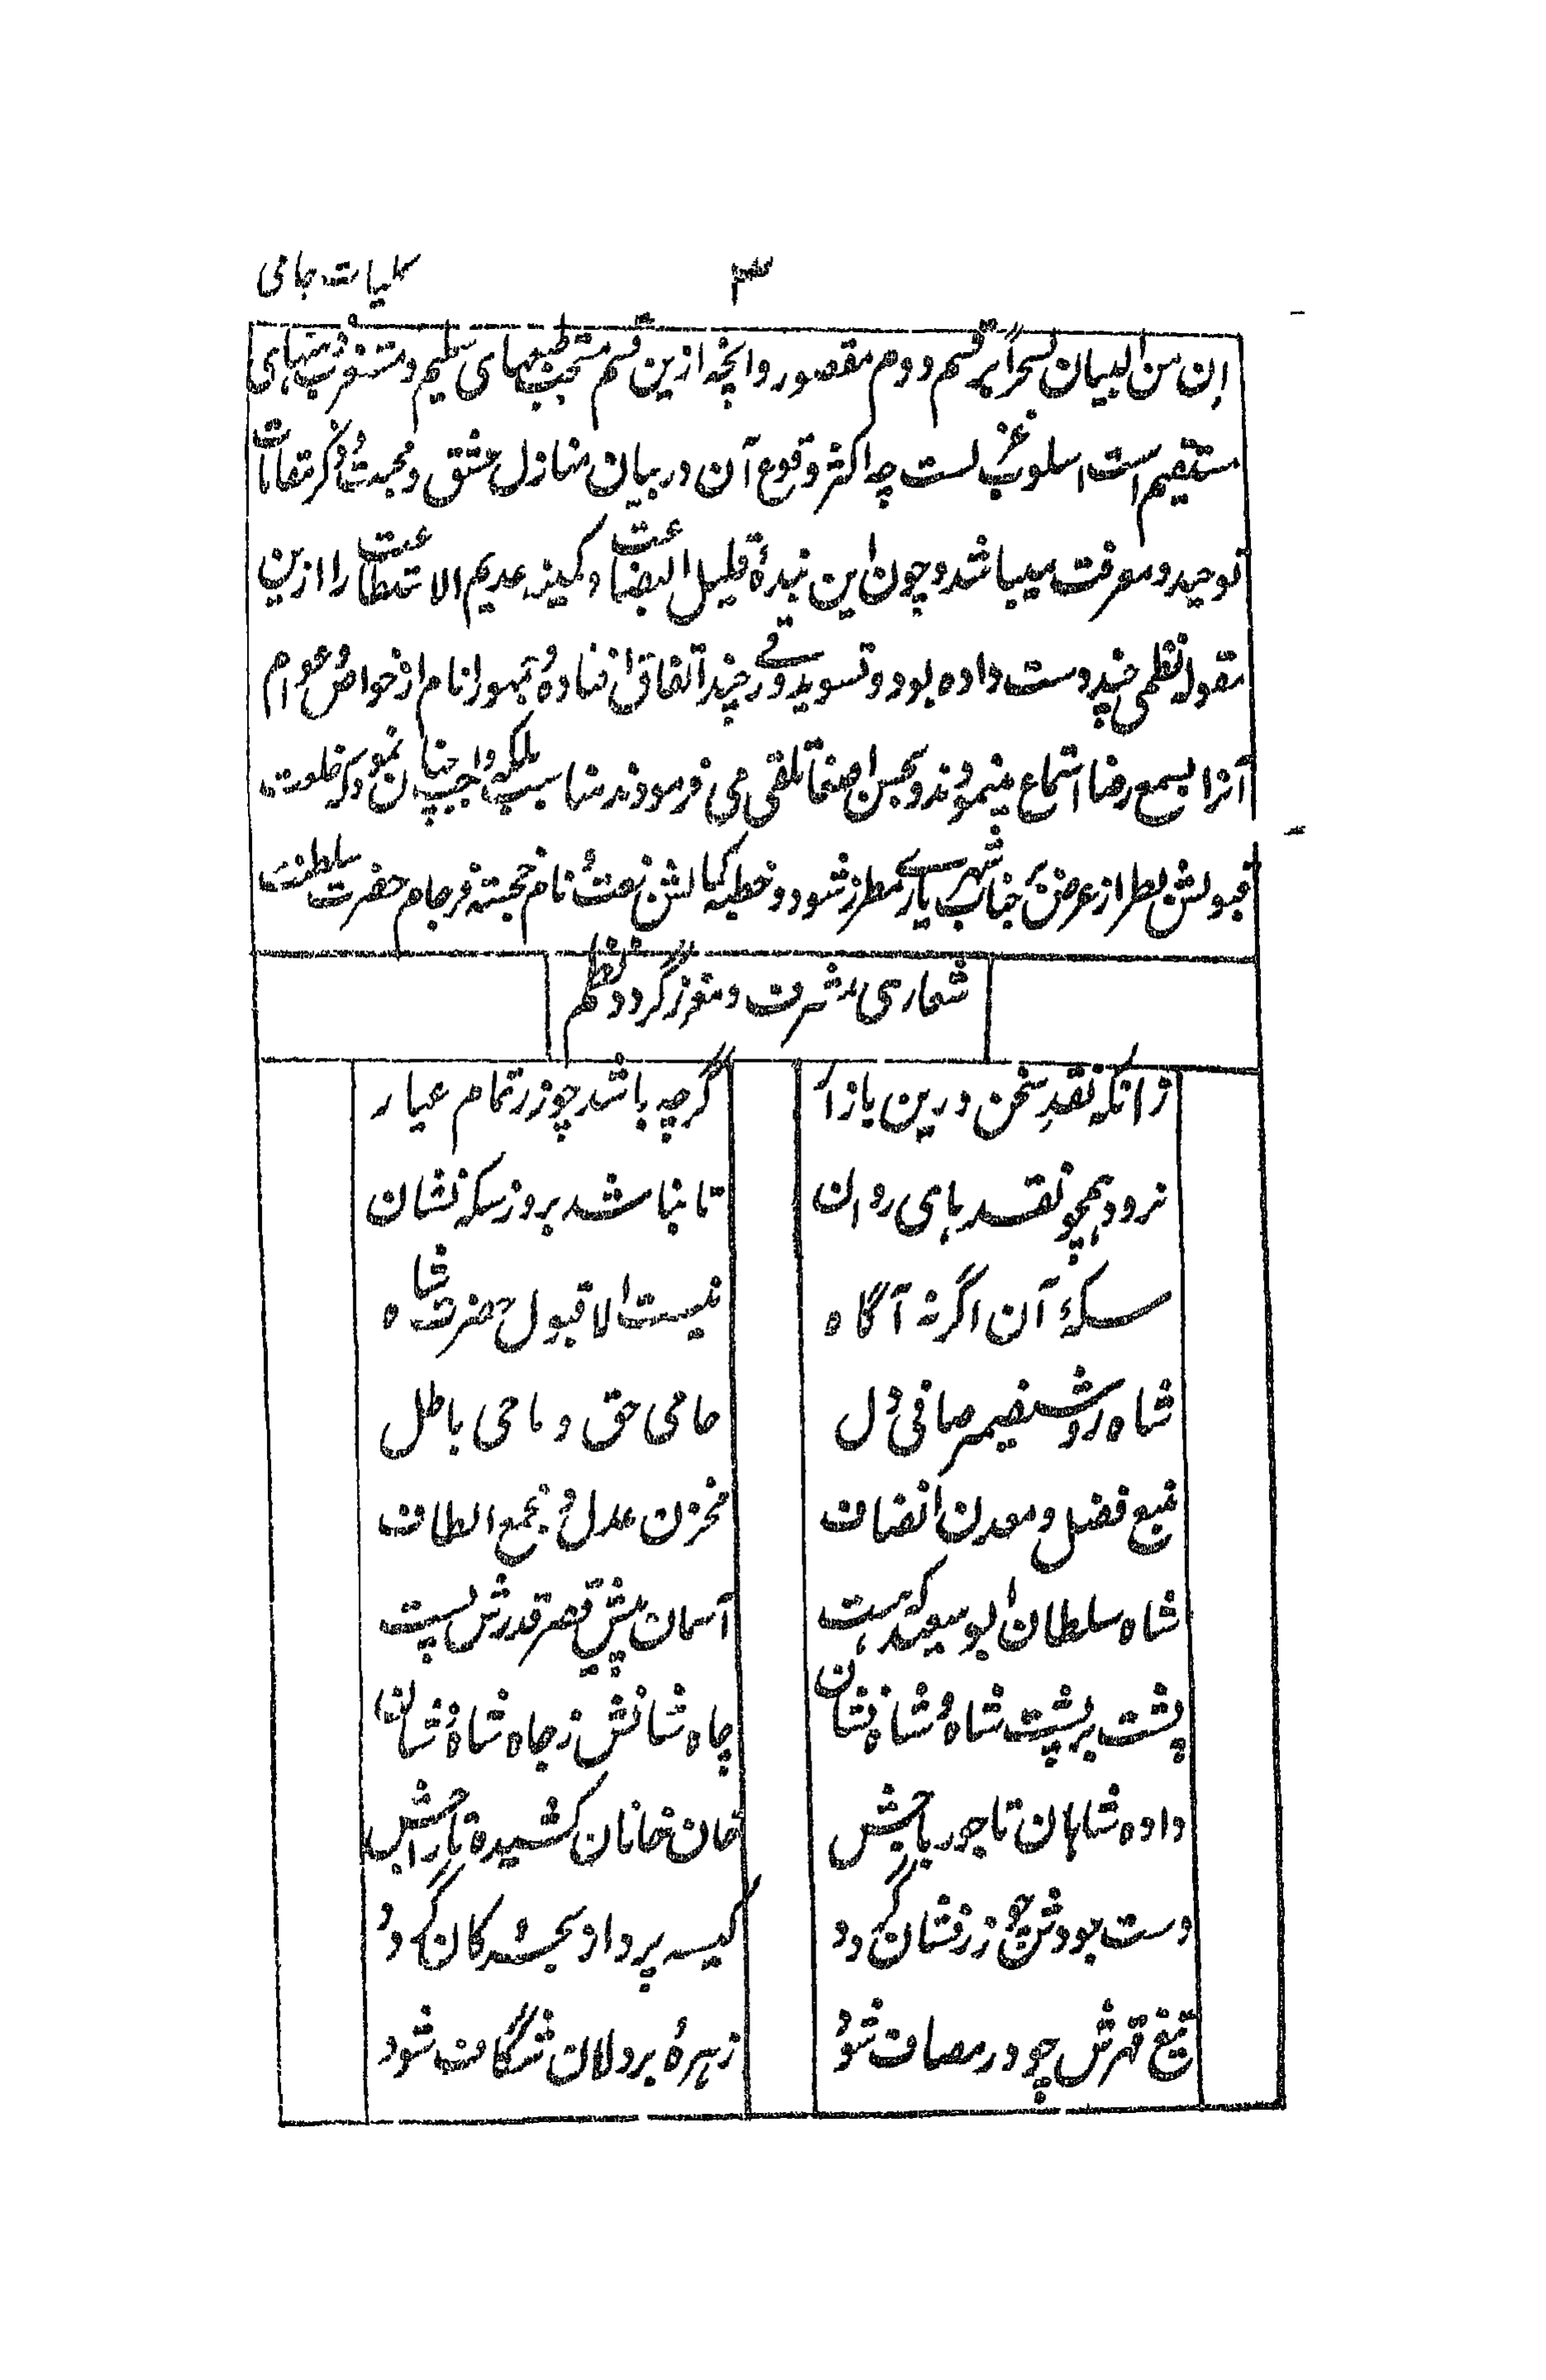 کلیات جامی
۳
ان من البیان لسحرا بر قسم دوم مقصور و انچه ازین قسم منتخب طبعهای سلیم و متنفر ذهنهای
مستقیم است اسلوب غزلست چه اکثر وقوع آن در بیان منازل عشق و محبت و ذکر مقامات
توحید و معرفت میباشد و چون این بندهٔ قلیل البضاعت و کمینه عدیم الاستطاعت را ازین
مقوله نظمی چند دست داده بود و تسوید ورقے چند اتفاق افتاده و جمهور انام از خواص و عوام
آنرا بسمع رضا استماع مینمودند و بحسن اصغا تلقی می فرمودند مناسب بلکه واجب چنان نمود که خلعت
قبولش بطراز عرض بر جناب شهریارے مطرز شود و خطبه کمالش بنعت نام خجسته فرجام حضرت سلطنت
شعاری مشرف و معزز گردد نظم
زانکه نقدِ سخن درین بازار
گرچه باشد چو زر تمام عیار
نرود همچو نقدهای روان
تا نباشد بروز سکه نشان
سکهٔ آن اگر نهٔ آگاه
نیست الا قبول حضرت شاه
شاه روشنضمیر صافی دل
حامی حق و ماحی باطل
منبع فضل و معدن انصاف
مخزن عدل و مجمع الطاف
شاه سلطان ابو سعید که هست
آسمان پیش قصر قدرش پست
پشت بر پشت شاه و شاه نشان
جاه شانش ز جاه شاهٔ شان
داده شاهان تاجور باجش
خان خانان کشیده تاراجش
دست جودش چو زرفشان گردد
کیسه پرداز بحر و کان گردد
تیغ قهرش چو در مصاف شود
زهرهٔ پردلان شگاف شود